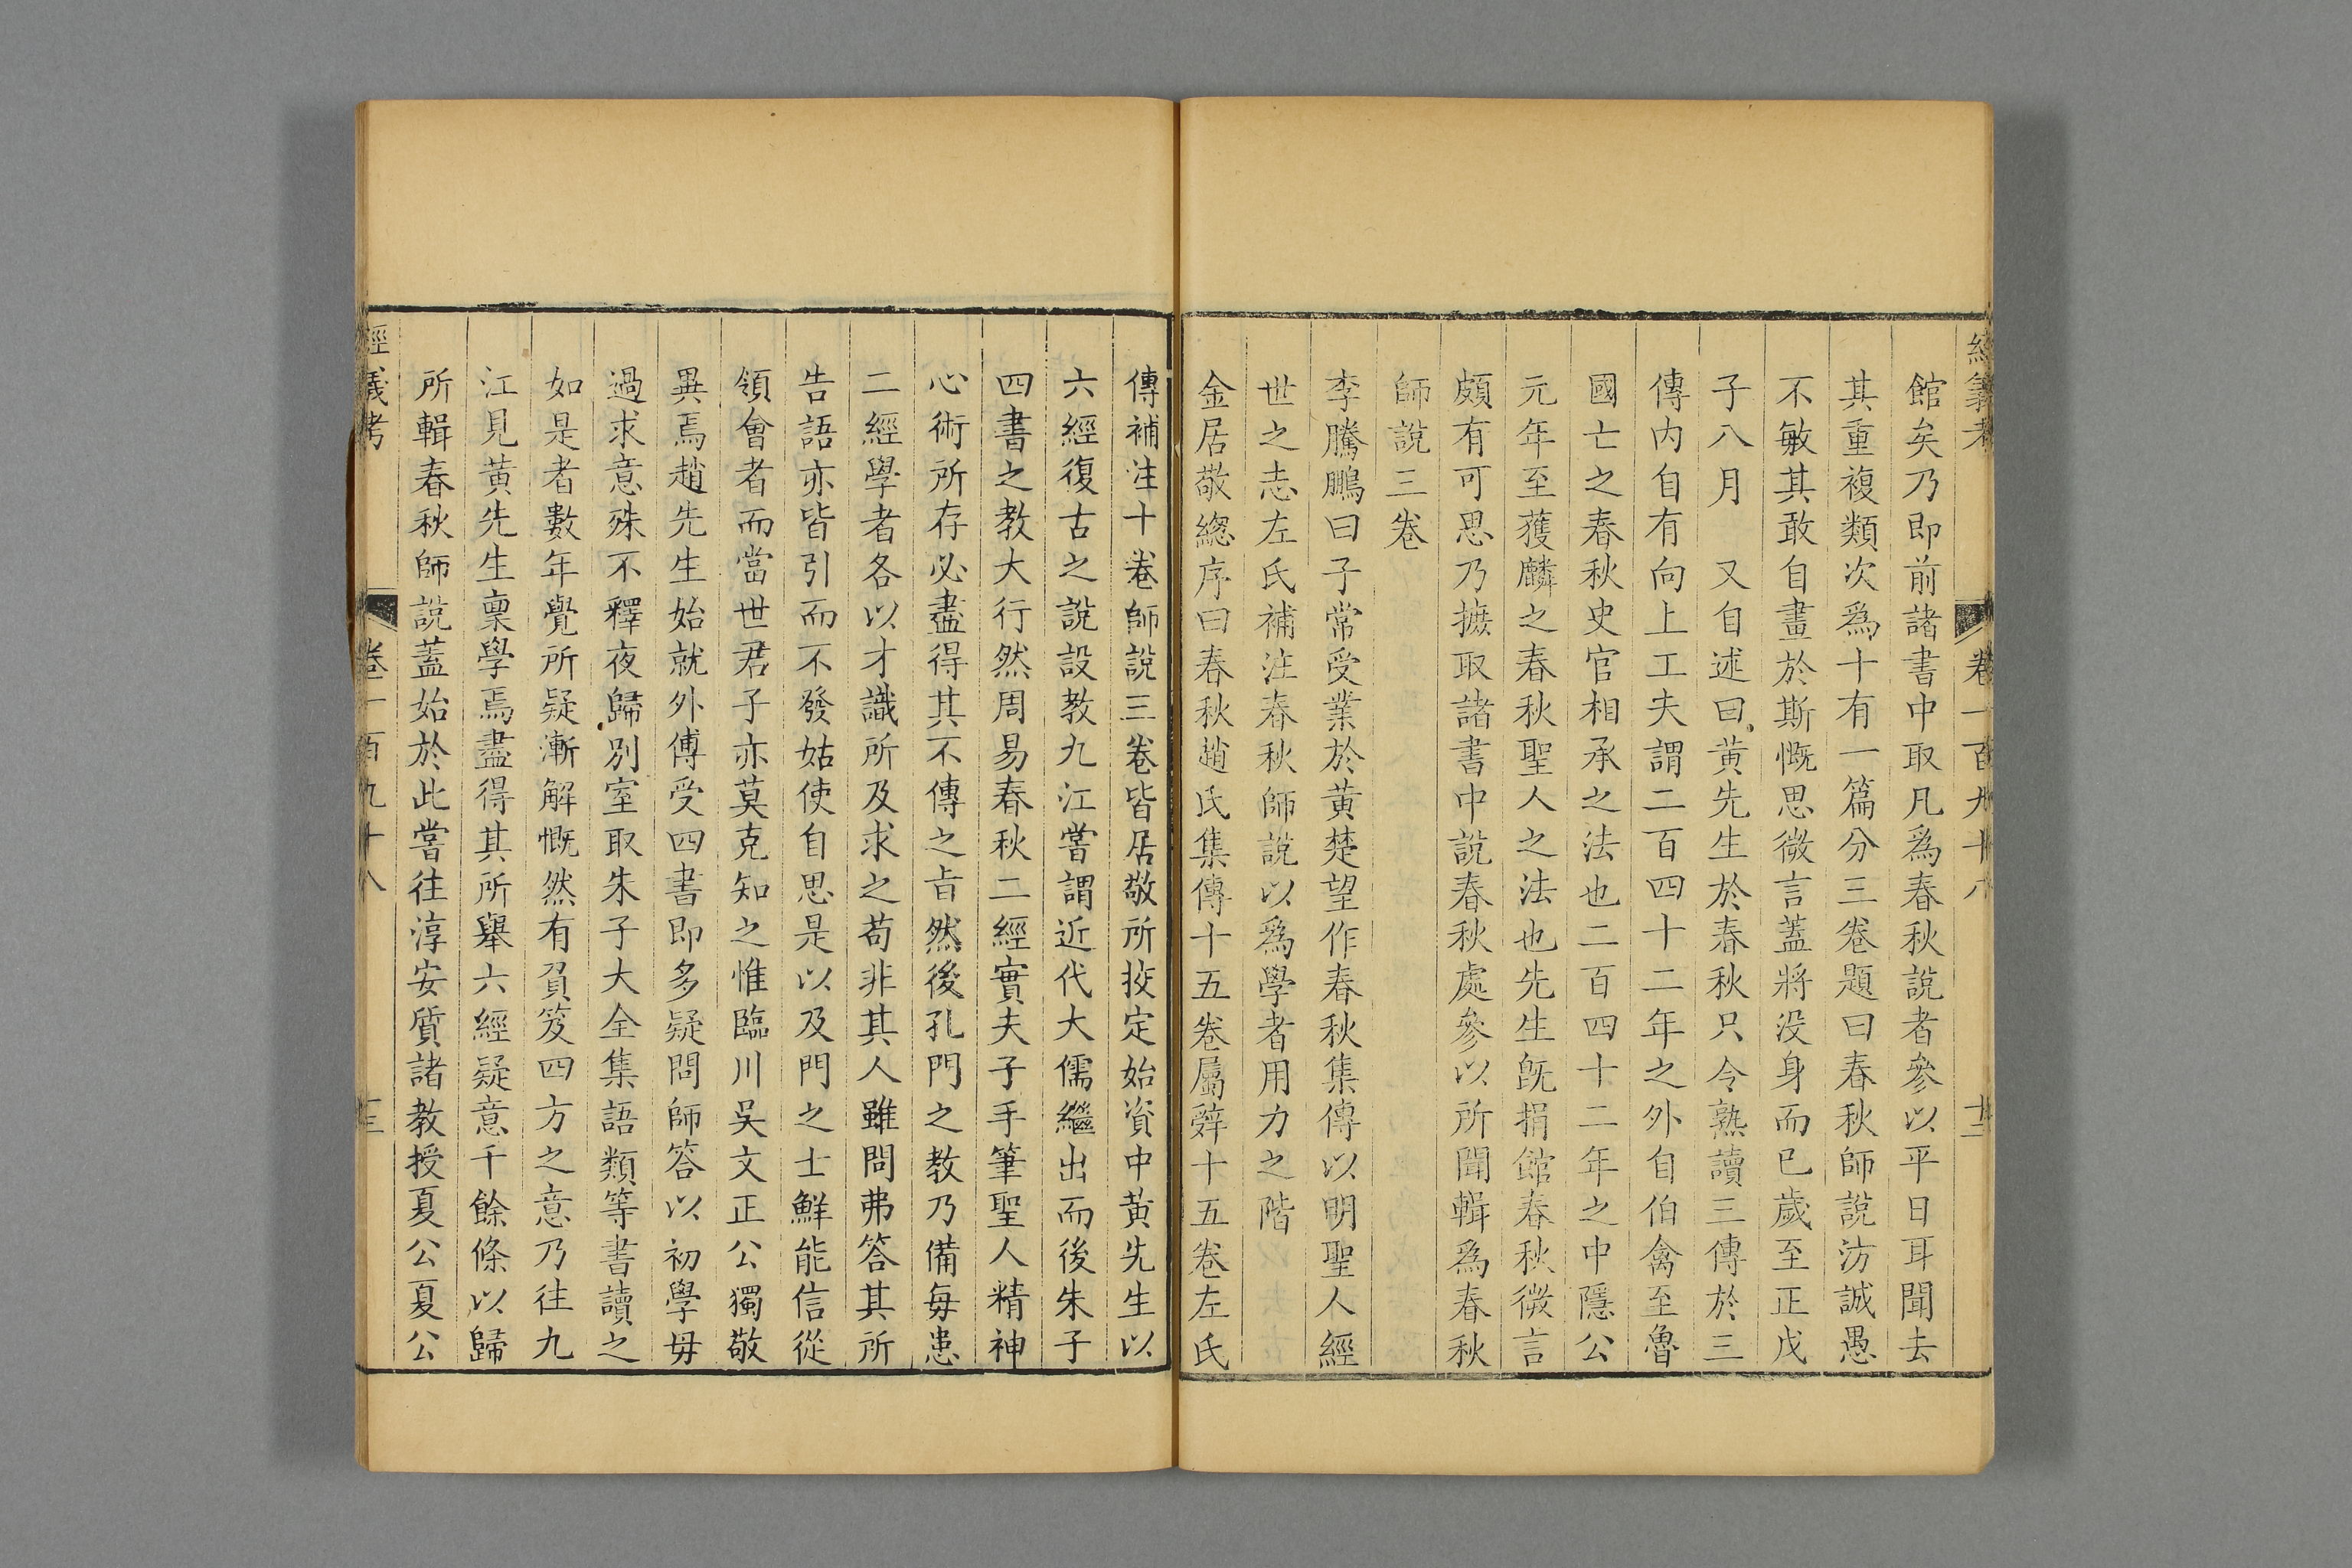 經義考 卷一百九十八 十二
館矣乃即前諸書中取凡爲春秋說者參以平日耳聞去
其重複類次爲十有一篇分三卷題曰春秋師說汸誠愚
不敏其敢自畫於斯慨思微言蓋將沒身而已歲至正戊
子八月 又自述曰黃先生於春秋只令熟讀三傳於三
傳內自有向上工夫謂二百四十二年之外自伯禽至魯
國亡之春秋史官相承之法也二百四十二年之中隱公
元年至獲麟之春秋聖人之法也先生旣捐館春秋微言
頗有可思乃摭取諸書中說春秋處參以所聞輯爲春秋
師說三卷
李騰鵬曰子常受業於黃楚望作春秋集傳以明聖人經
世之志左氏補注春秋師說以爲學者用力之階
金居敬總序曰春秋趙氏集傳十五卷屬辭十五卷左氏
傳補注十卷師說三卷皆居敬所挍定始資中黃先生以
六經復古之說設教九江嘗謂近代大儒繼出而後朱子
四書之教大行然周易春秋二經實夫子手筆聖人精神
心術所存必盡得其不傳之旨然後孔門之教乃備每患
二經學者各以才識所及求之苟非其人雖問弗答其所
告語亦皆引而不發姑使自思是以及門之士鮮能信從
領會者而當世君子亦莫克知之惟臨川吳文正公獨敬
異焉趙先生始就外傅受四書即多疑問師答以初學毋
過求意殊不釋夜歸別室取朱子大全集語類等書讀之
如是者數年覺所疑漸解慨然有負笈四方之意乃往九
江見黃先生稟學焉盡得其所舉六經疑意千餘條以歸
所輯春秋師說蓋始於此嘗往淳安質諸教授夏公夏公
經義考 卷一百九十八